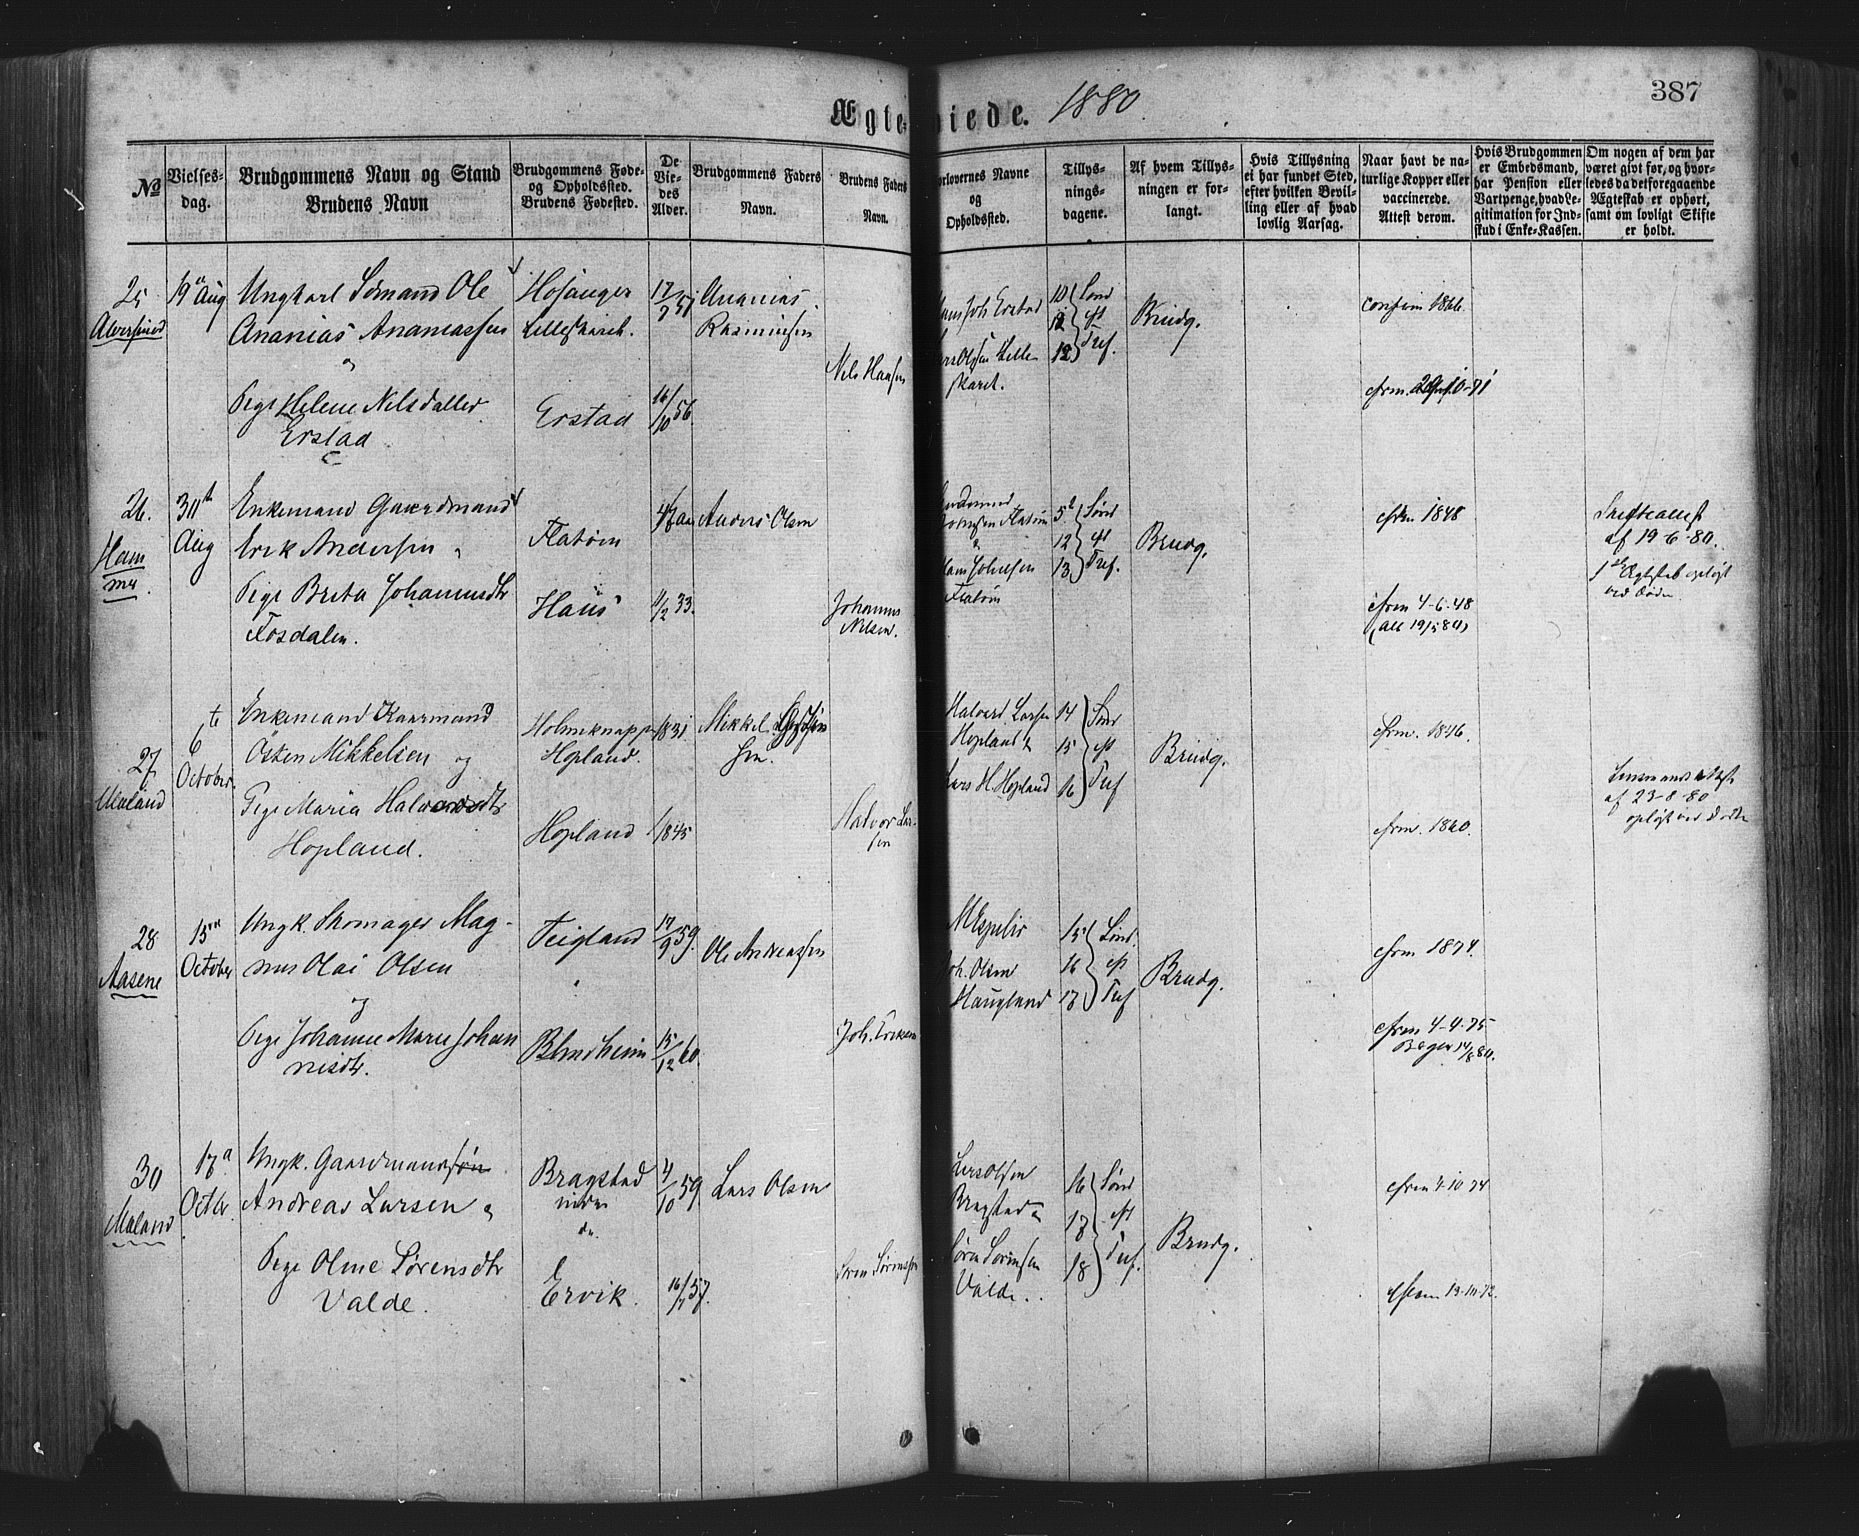 Ægte- viede. 1880.
387
No
Vielses-
dag.
Brudgommens Navn og Stand
Brudens Navn
Brudgommens Føde-
og Opholdssted.
Brudens Fødested.
De
Vie-
des
Alder.
Brudgommens Faders
Navn.
Brudens Faders
Navn.
orlovernes Navne
og
Opholdssted.
Tillys-
nings-
dagene.
Af hvem Tillys-
ningen er for-
langt.
Hvis Tillysning
ei har fundet Sted,
efter hvilken Bevil-
ling eller af hvad
lovlig Aarsag.
Naar havt de na-
turlige Kopper eller
vaccinerede.
Attest derom.
Hvis Brudgommen
er Embedsmand,
har Pension eller
Vartpenge, hvad Le-
gitimation for Ind-
skud i Enke-Kassen.
Om nogen af dem har
været givt før, og hvor-
ledes da det foregaaende
Ægteskab er ophørt,
samt om lovligt Skifte
er holdt.
25
Alversund
19 Aug
Ungkarl Sömand Ole
Ananias Ananiassen
Pige Helene Nilsdatter
Erstad
Hosanger
Lilleskaret.
Erstad
17/7 51
16/10 56.
Ananias
Rasmussen
Nils Hansen
Hans Joh Erstad
Lars Olsen Lille-
skaret.
10 Sönd
12 eft
Tref.
Brudg.
confirm 1866.
26.
Ham
mer
30
Aug
Enkemand Gaardmand
Erik Andersen
Pige Brita Johannesdtr
Fosdalen.
Flatöen
Haus
11/2 33.
Anders Olsen
Johannes
Nilsen.
Flatöen
5 Sönd
12 eft
13 Tref.
Brudg.
cfrm 1848
cfrm 4-6-48
(att 19/5 80)
Skifteattest
af 19-6-80.
1ste Ægtesk opløst
ved Døden
27
Meland
6te
October
Enkemand Gaarmand
Östen Mikkelsen og
Pige Maria Halvorsdtr
Hopland.
Holmeknappe
Hopland.
Hopland
1831
1845
Mikkel
sen.
Halvor Lar-
sen
Halvard Larsen
Hopland &
Lars H. Hopland
14 Sönd
15 eft
16 Tref
Brudg.
cfrm. 1846.
cfrm. 1860.
af 23-8-80
opløst ved Døden
28
Aasene
15
October
Ungk. Skomager Mag-
nus Olai Olsen
og
Pige Johanne Marie Johan
nisdtr.
Teigland
Blindheim
17/9 59.
15/12 60.
Ole Andreassen
Joh. Eriksen
M Espeliv
Joh. Olsen
Haugland
15 Sönd.
16 eft
17 Tref
Brudg.
cfrm 1874.
cfrm 4-4-75
Bøger 14/8 80.
30
Meland
17
Octbr.
Ungk. Gaardmandssøn
Andreas Larsen &
Pige Oline Sörensdtr
Valde.
Bragstad
nedre
Ervik.
4/10 59
16/7 57.
Lars Olsen
Sören Sörenssen
Lars Olsen
Bragstad &
Sören Sörensen
Valde.
16 Sönd
17 eft
18 Tref.
Brudg.
cfrm 4-10-74
cfrm 13-10-72.